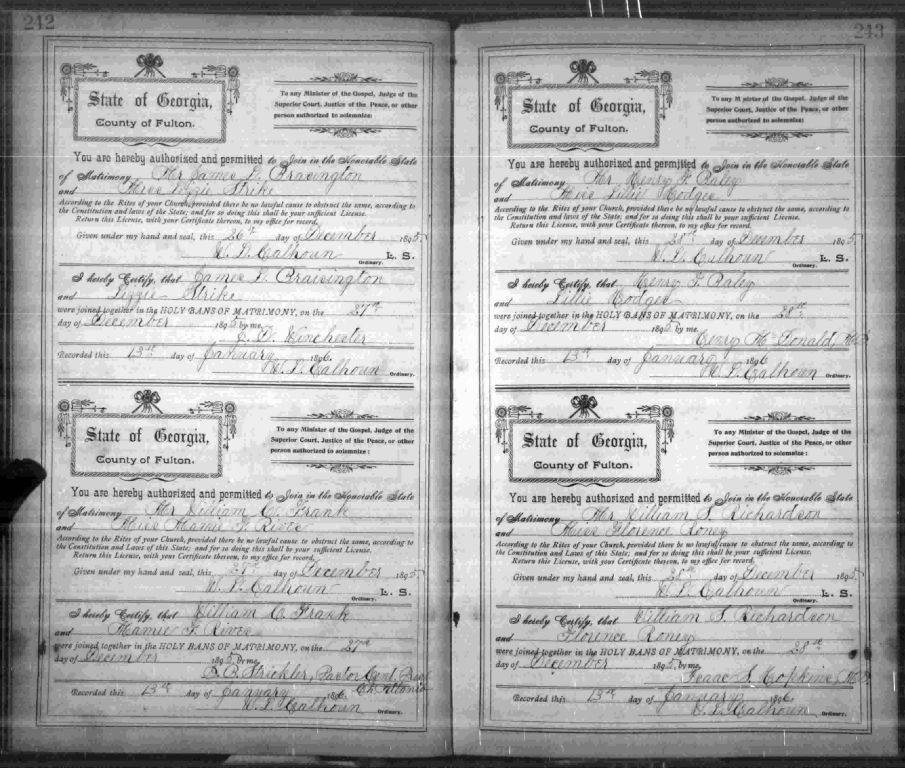 242
State of Georgia,
County of Fulton.
To any Minister of the Gospel, Judge of the
Superior Court, Justice of the Peace, or other
person authorized to solemnize:
You are hereby authorized and permitted to Join in the Honorable State
of Matrimony Mr James L. Braisington
and Miss Lizzie Strike
According to the Rites of your Church, provided there be no lawful cause to obstruct the same, according to
the Constitution and Laws of this State; and for so doing this shall be your sufficient License.
Return this License, with your Certificate thereon, to my office for record.
Given under my hand and seal, this 26th day of December 1895
W. L. Calhoun L. S.
Ordinary.
I hereby Certify, that James L. Braisington
and Lizzie Strike
were joined together in the HOLY BANS OF MATRIMONY, on the 27th
day of December 1895 by me,
Winchester
Recorded this 13th day of January 1896.
W. L. Calhoun
Ordinary.
State of Georgia,
County of Fulton.
To any Minister of the Gospel, Judge of the
Superior Court, Justice of the Peace, or other
person authorized to solemnize:
You are hereby authorized and permitted to Join in the Honorable State
of Matrimony Mr William C. Frank
and Miss Mamie F.
According to the Rites of your Church, provided there be no lawful cause to obstruct the same, according to
the Constitution and Laws of this State; and for so doing this shall be your sufficient License.
Return this License, with your Certificate thereon, to my office for record.
Given under my hand and seal, this day of December 1895
W. L. Calhoun L. S.
Ordinary.
I hereby Certify, that William C. Frank
and Mamie F.
were joined together in the HOLY BANS OF MATRIMONY, on the 27th
day of December 1895 by me,
Strickler, Pastor Cent. Pres.
Ch. Atlanta
Recorded this 13th day of January 1896.
W. L. Calhoun
Ordinary.
243
State of Georgia,
County of Fulton.
To any Minister of the Gospel, Judge of the
Superior Court, Justice of the Peace, or other
person authorized to solemnize:
You are hereby authorized and permitted to Join in the Honorable State
of Matrimony Mr Henry F. Raley
and Miss Lillie Hodges
According to the Rites of your Church, provided there be no lawful cause to obstruct the same, according to
the Constitution and laws of this State; and for so doing this shall be your sufficient License.
Return this License, with your Certificate thereon, to my office for record.
Given under my hand and seal, this 28th day of December 1895
W. L. Calhoun L. S.
Ordinary.
I hereby Certify, that Henry F. Raley
and Lillie Hodges
were joined together in the HOLY BANS OF MATRIMONY, on the 28th
day of December 1895 by me,
Henry McDonald,
Recorded this 13th day of January 1896
W. L. Calhoun
Ordinary.
State of Georgia,
County of Fulton.
To any Minister of the Gospel, Judge of the
Superior Court, Justice of the Peace, or other
person authorized to solemnize:
You are hereby authorized and permitted to Join in the Honorable State
of Matrimony Mr William S. Richardson
and Miss Florence Roney
According to the Rites of your Church, provided there be no lawful cause to obstruct the same, according to
the Constitution and Laws of this State; and for so doing this shall be your sufficient License.
Return this License, with your Certificate thereon, to my office for record.
Given under my hand and seal, this 28th day of December 1895
W. L. Calhoun L. S.
Ordinary.
I hereby Certify, that William S. Richardson
and Florence Roney
were joined together in the HOLY BANS OF MATRIMONY, on the 28th
day of December 1895, by me,
Isaac S. Hopkins,
Recorded this 13th day of January 1896
W. L. Calhoun
Ordinary.